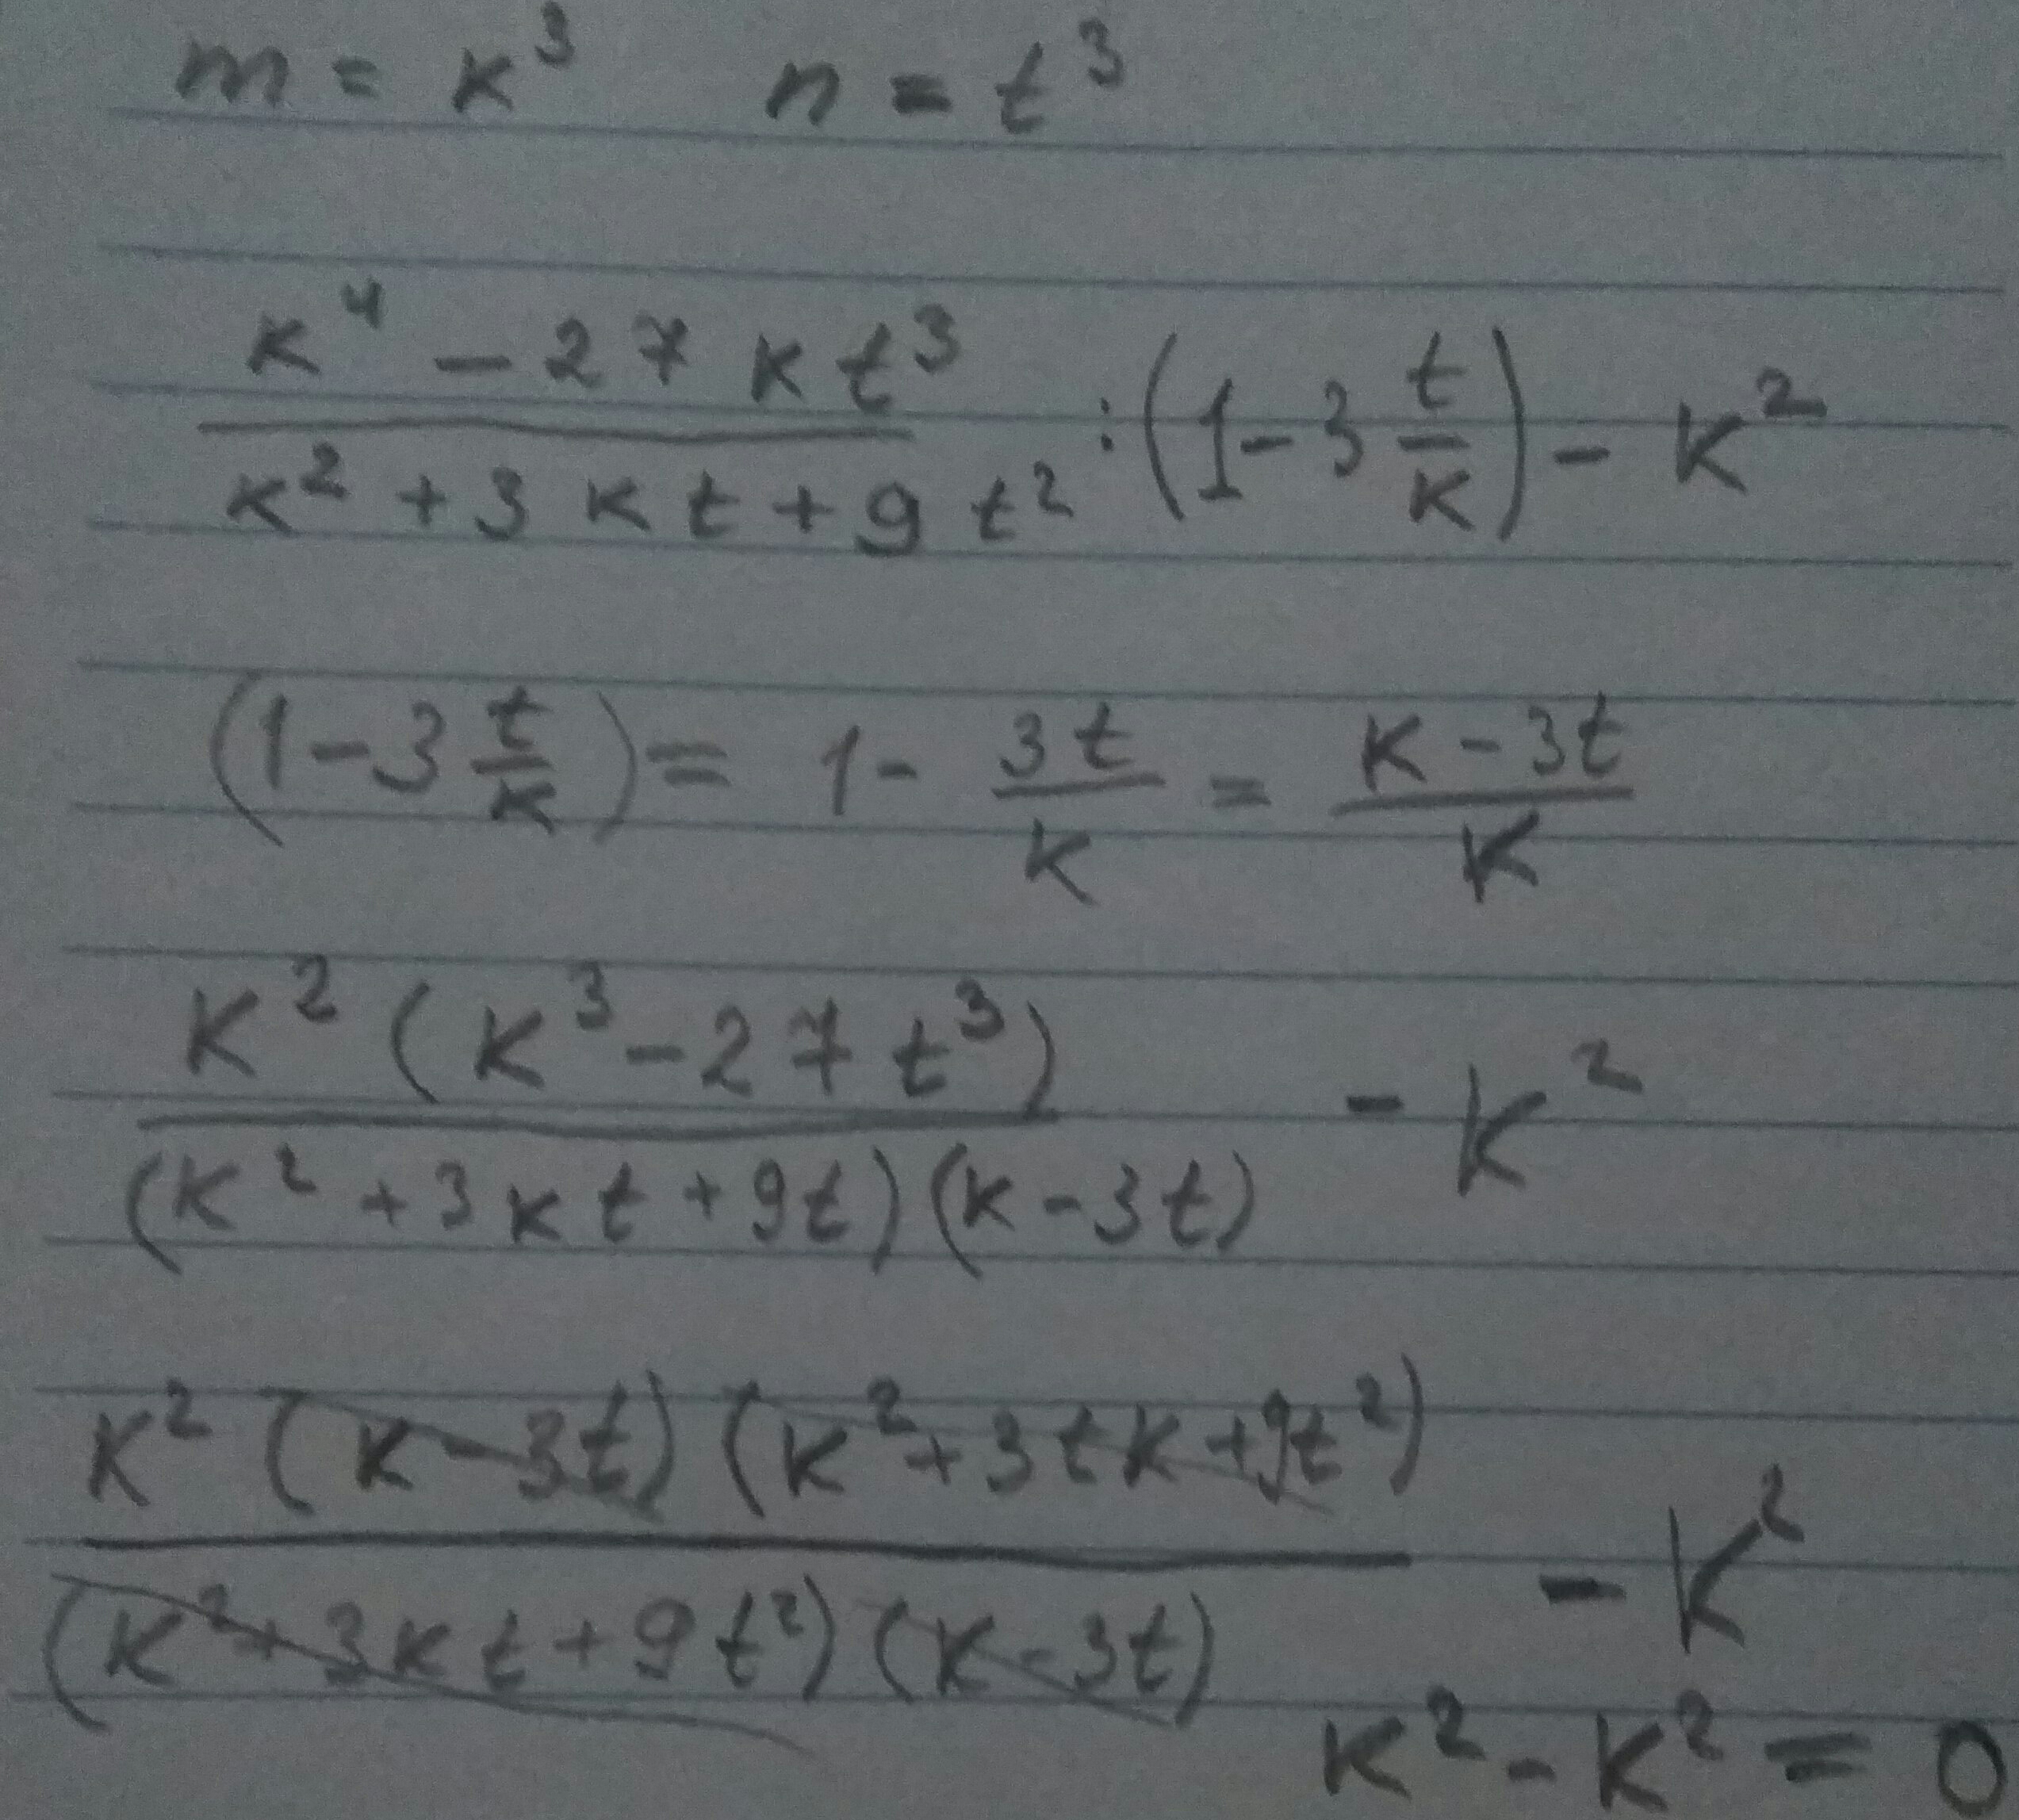 m = k³ n = t³
k⁴ - 27kt³ / k² + 3kt + 9t² : (1 - 3 t/k) - k²
(1 - 3 t/k) = 1 - 3t/k = k - 3t/k
k² (k³ - 27t³) / (k² + 3kt + 9t)(k - 3t) - k²
k² (k - 3t) (k² + 3tk + 9t²) / (k² + 3kt + 9t²) (k - 3t) - k²
k² - k² = 0